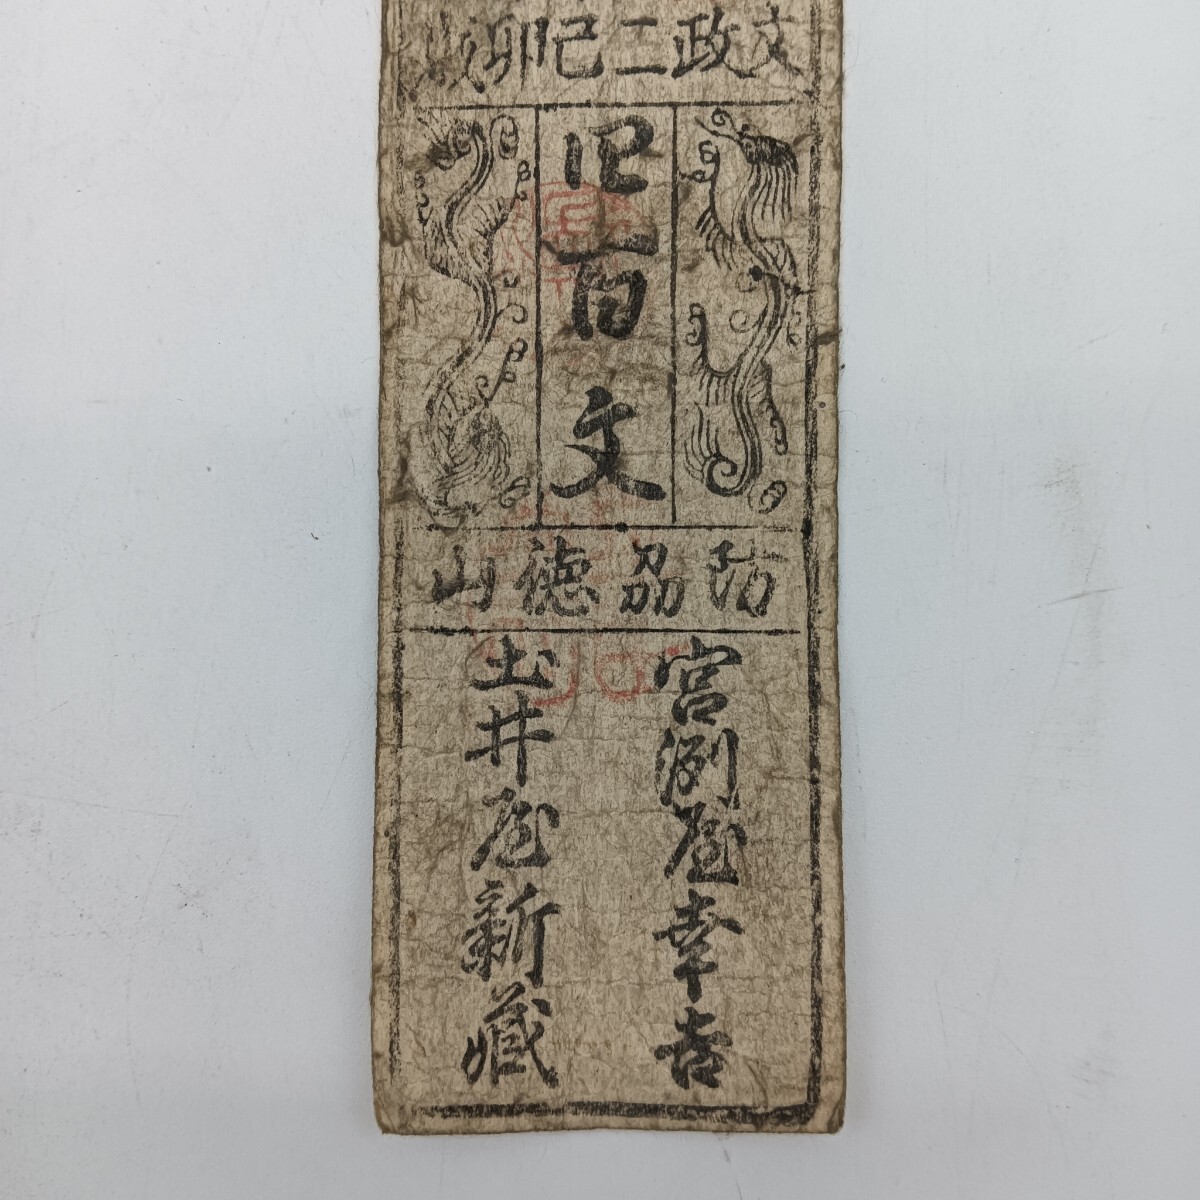 文政二己卯
四百文
防刕徳山
宮渕屋幸吉
土井屋新藏